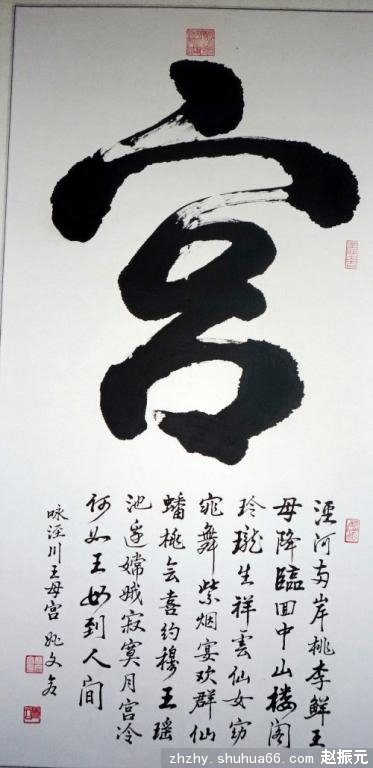 宫
泾河两岸桃李鲜王
母降臨回中山楼阁
玲珑生祥雲仙女窈
窕舞紫烟宴欢群仙
蟠桃会喜约穆王瑶
池边嫦娥寂寞月宫冷
何如王母到人间
咏泾川王母宫 姚文仓
zhzhy.shuhua66.com/赵振元